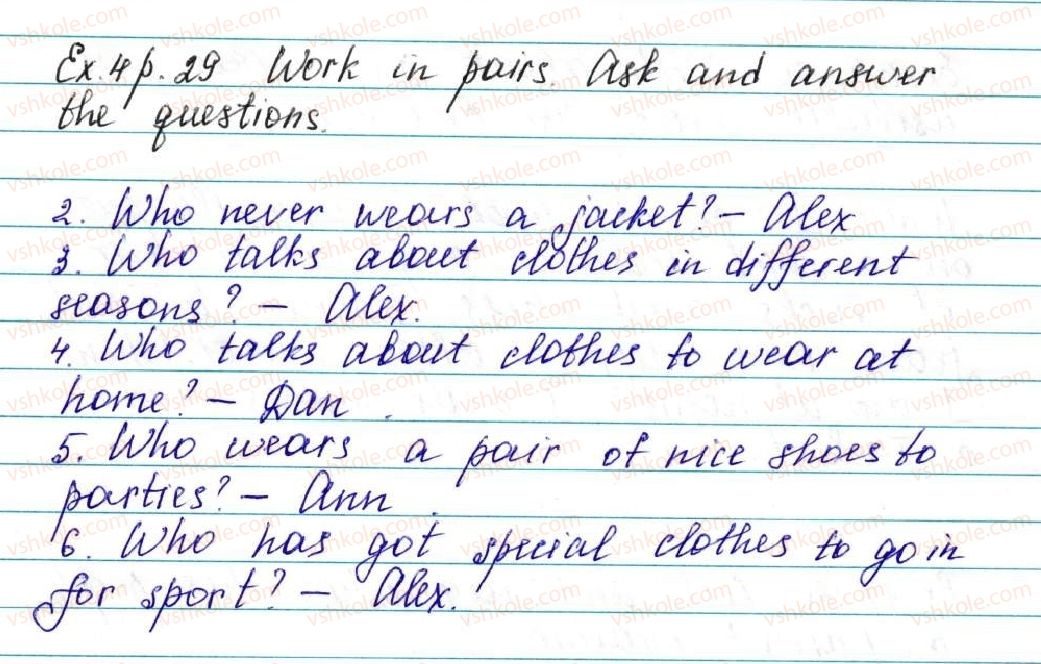 Ex. 4 p. 29 Work in pairs. Ask and answer
the questions.
2. Who never wears a jacket? – Alex
3. Who talks about clothes in different
seasons? – Alex.
4. Who talks about clothes to wear at
home? – Dan.
5. Who wears a pair of nice shoes to
parties? – Ann.
6. Who has got special clothes to go in
for sport? – Alex.
vshkole.com